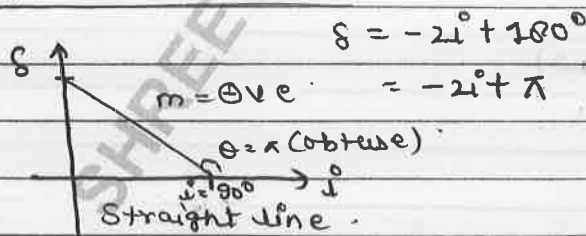 δ = -2i + 180°
δ
m = ⊖ve
= -2i + π
θ = π (obtuse)
i = 90°
i
Straight line.
SHREE